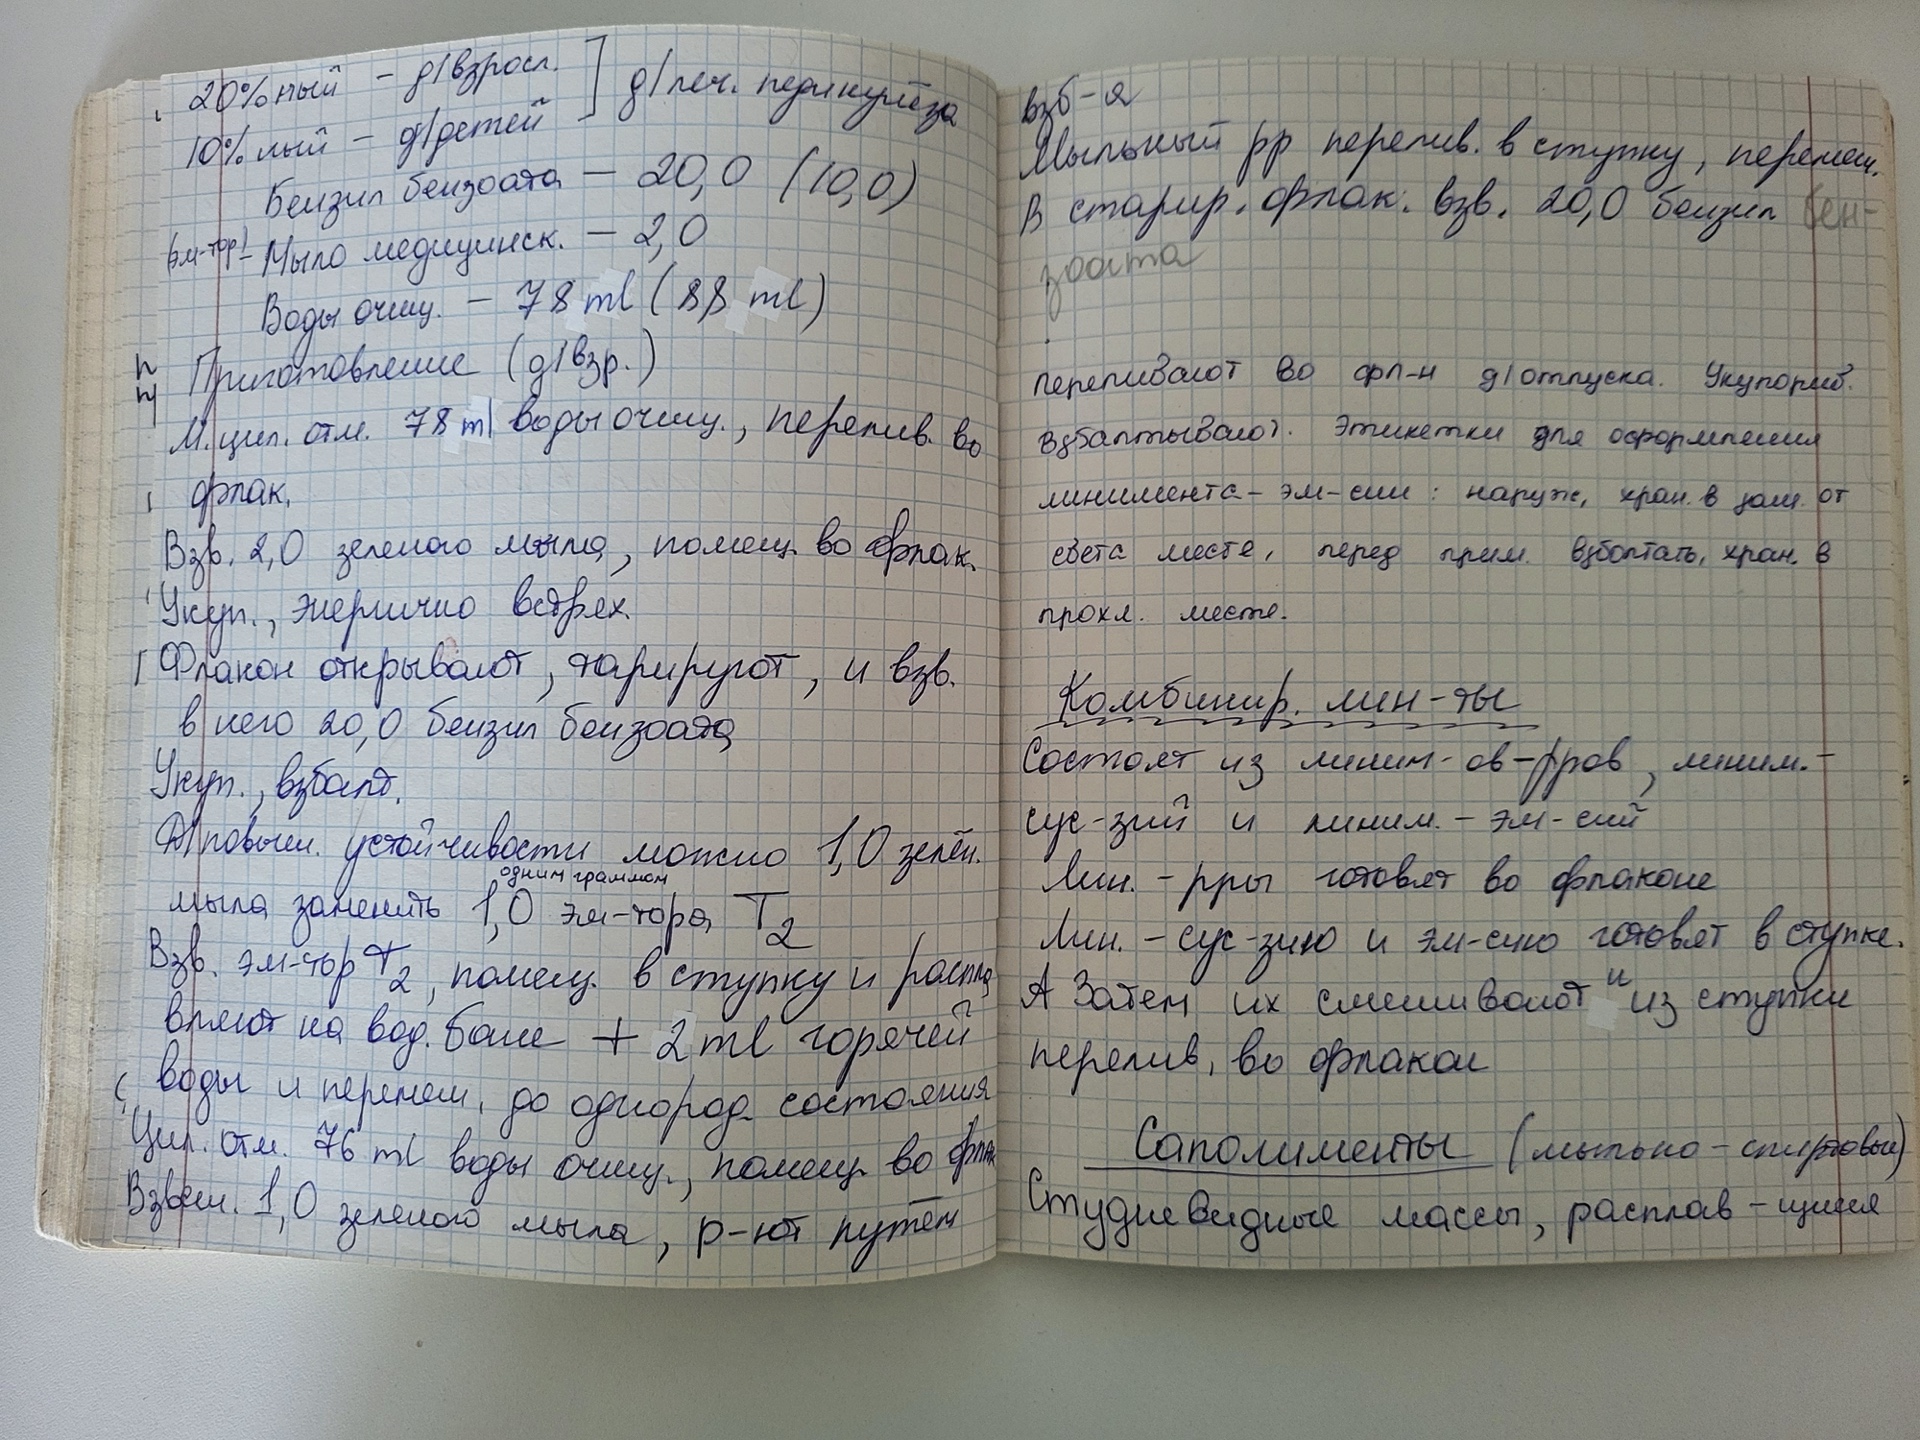 20%ный - д/взросл. ] д/леч. педикулёза
10%ный - д/детей
Бензил бензоата - 20,0 (10,0)
(эм-тор) - Мыло медицинск. - 2,0
Воды очищ. - 78 ml (88 ml)
Приготовление (д/взр.)
М. цил. отм. 78 ml воды очищ., перелив. во
флак.
Взв. 2,0 зеленого мыла, помещ. во флак.
Укуп., энергично встрях.
Флакон открывают, тарируют, и взв.
в него 20,0 бензил бензоата
Укуп., взбалт.
Д/повыш. устойчивости можно 1,0 зелён.
одним граммом
мыла заменить 1,0 эм-тора Т2
Взв. эм-тор Т2, помещ. в ступку и распла
вляют на вод. бане + 2 ml горячей
воды и перемеш. до однород. состояния
Цил. отм. 76 ml воды очищ., помещ. во флак
Взвеш. 1,0 зеленого мыла, р-ют путём
взб-я
Мыльный рр перелив. в ступку, перемеш.
В старир. флак. взв. 20,0 бензил бен-
зоата
переливают во фл-н д/отпуска. Укупорив.
Взбалтывают. Этикетки для оформления
линимента - эм-сии: наруж, хран. в защ. от
света месте, перед прим. взболтать, хран. в
прохл. месте.
Комбинир. лин-ты
Состоят из линим-ов-рров, линим.-
сус-зий и линим. - эм-сий
Лин. - рры готовят во флаконе
Лин. - сус-зию и эм-сию готовят в ступке.
А Затем их смешивают и из ступки
перелив. во флакон
Сапонименты (мыльно-спиртовые)
Студневидные массы, расплав-щиеся